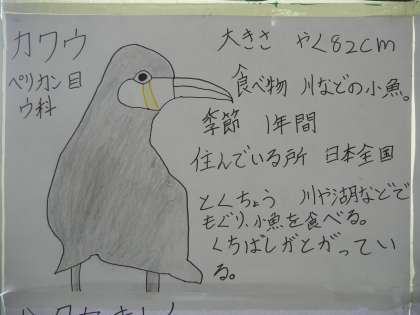 カワウ
ペリカン目
ウ科
大きさ やく82cm
食べ物 川などの小魚。
季節 1年間
住んでいる所 日本全国
とくちょう 川や湖などで
もぐり、小魚を食べる。
くちばしがとがってい
る。